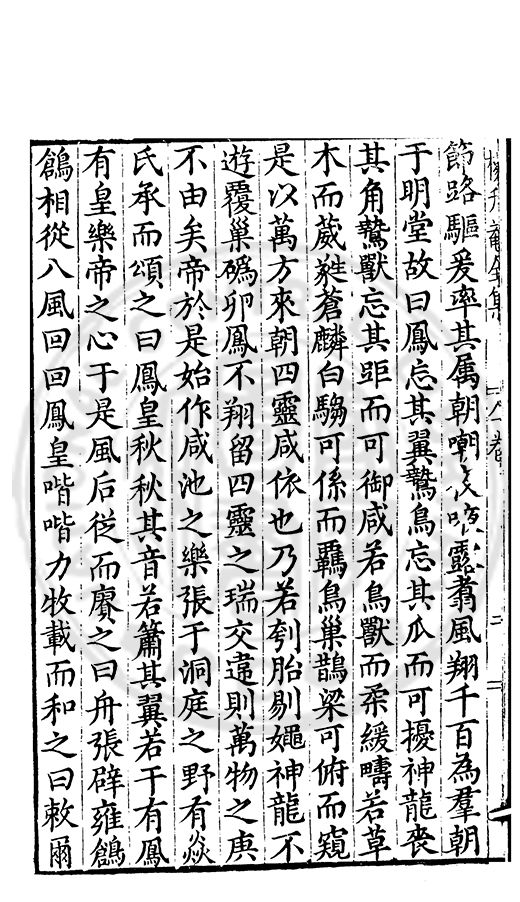 節路驅爰率其属朝嘲夜喚靈翥風翔千百為羣朝
于明堂故曰鳳忘其翼鷙鳥忘其爪而可擾神龍喪
其角鷙獸忘其距而可御咸若鳥獸而柔緩疇若草
木而葳蕤蒼麟白騶可係而羈鳥巢鵲梁可俯而窺
是以萬方來朝四靈咸依也乃若刳胎剔䵴神龍不
遊覆巢碼卵鳳不翔留四靈之瑞交違則萬物之庚
不由矣帝於是始作咸池之樂張于洞庭之野有焱
氏承而頌之曰鳳皇秋秋其音若簫其翼若干有鳳
有皇樂帝之心于是風后従而賡之曰舟張辟雍鶬
鶬相從八風回回鳳皇喈喈力牧載而和之曰敕爾